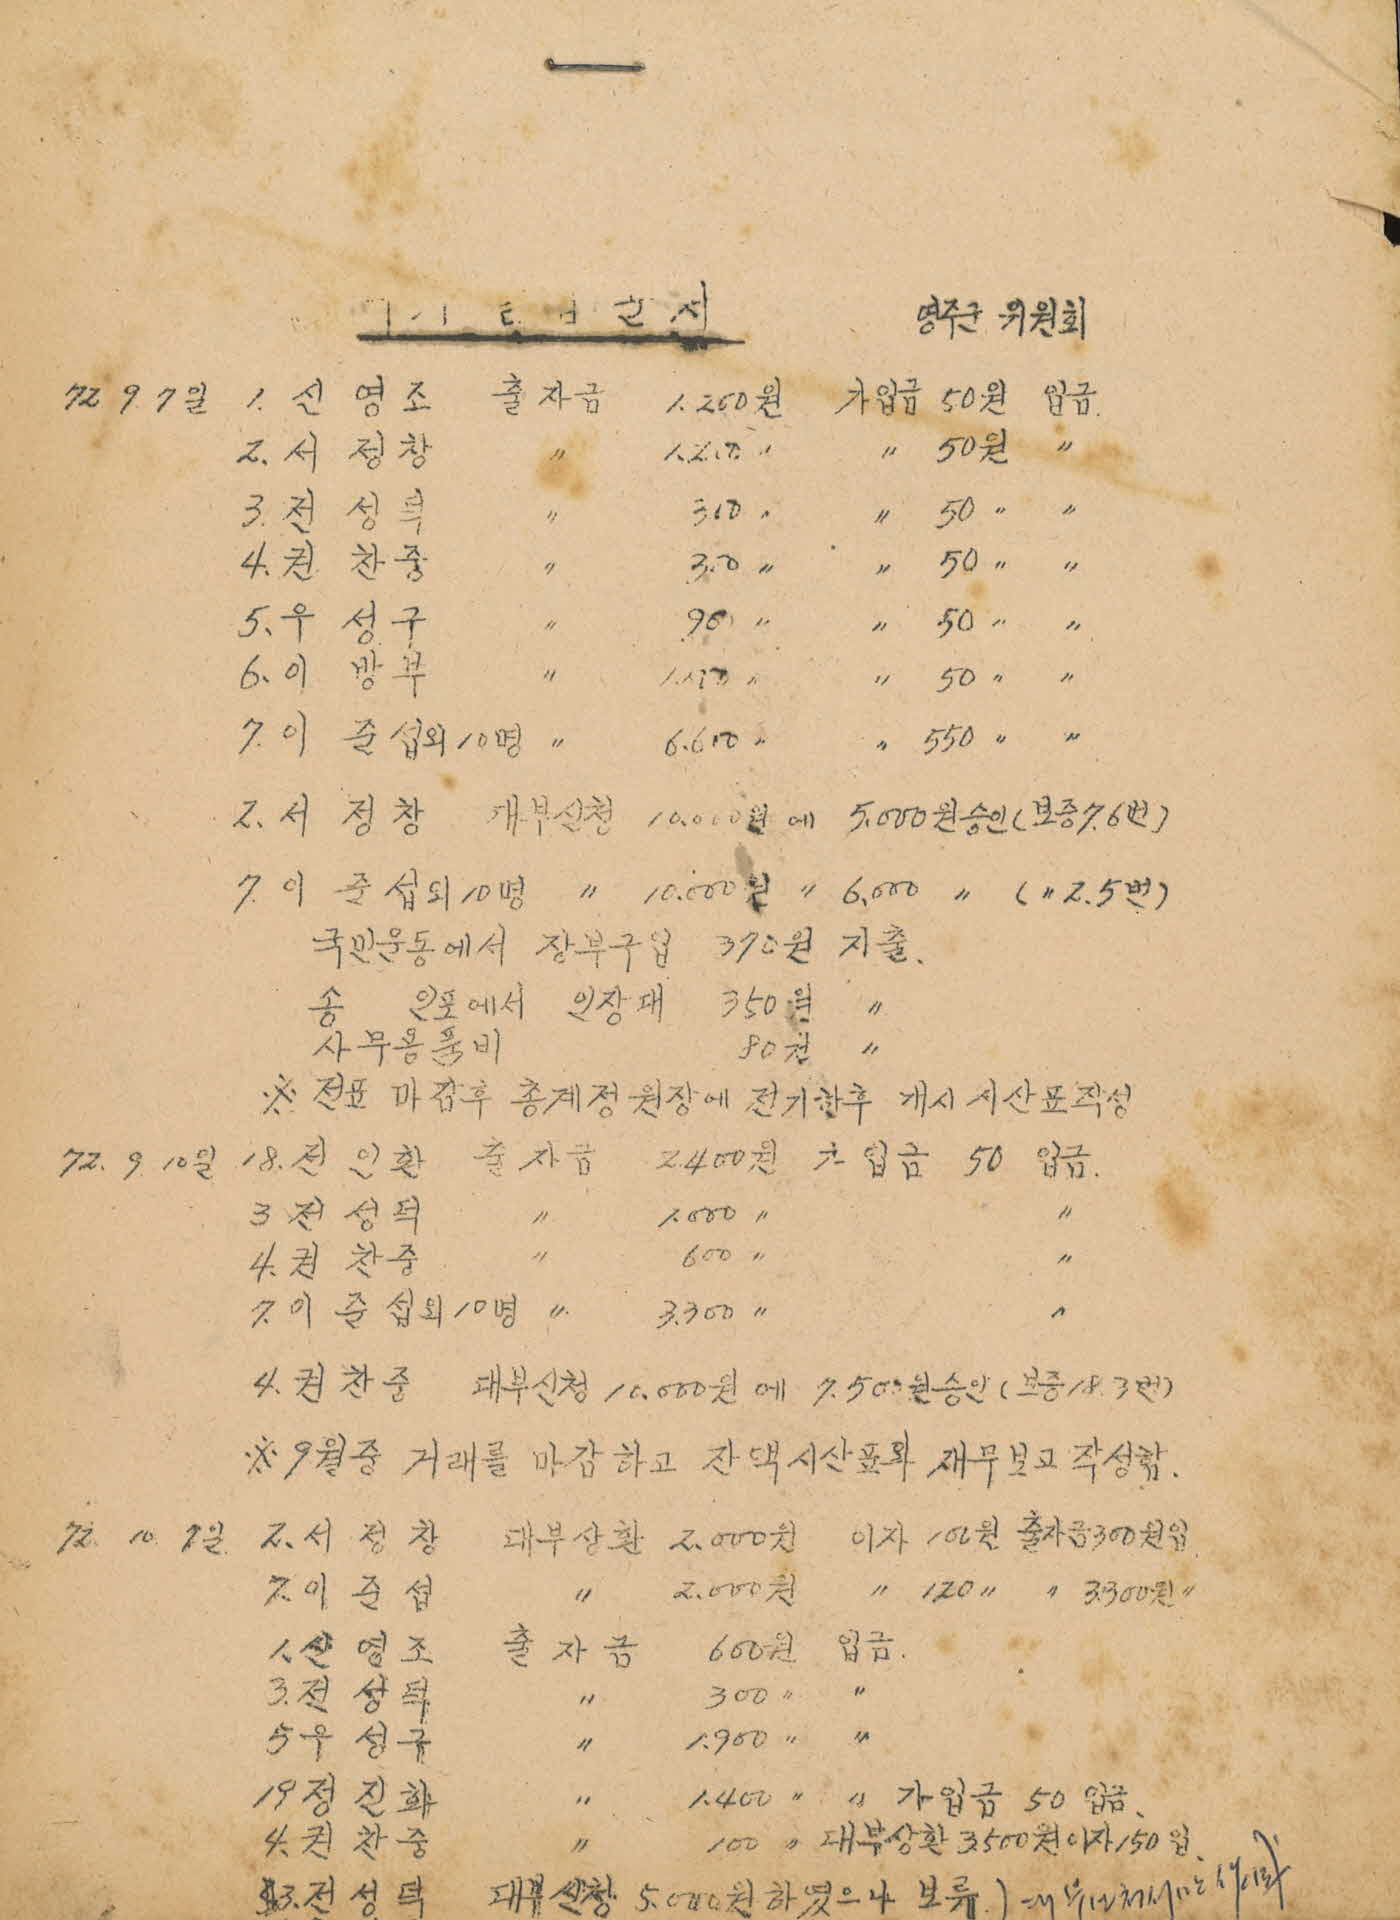 영주군 위원회
72 9. 7일 1. 신 영 조 출 자 금 1.200원 가입금 50원 입금.
2. 서 정 창 〃 1.200 〃 〃 50원 〃
3. 전 성 덕 〃 300 〃 〃 50 〃 〃
4. 권 찬 중 〃 300 〃 〃 50 〃 〃
5. 우 성 구 〃 900 〃 〃 50 〃 〃
6. 이 방 부 〃 〃 〃 50 〃 〃
7. 이 준 섭외 10명 〃 6.600 〃 〃 550 〃 〃
2. 서 정 창 대부신청 10.000원 에 5.000원승인 (보증7.6번)
7. 이 준 섭외 10명 〃 10.000원 〃 6.000 〃 (〃 2.5번)
국민운동에서 장부구입 370원 지출.
송 인포에서 인장대 350원 〃
사무용품비 80원 〃
※ 전표 마감후 총계정원장에 전기한후 개시 시산표작성
72. 9. 10일 18. 전 인 환 출 자 금 2.400원 가 입금 50 입금.
3 전 성 덕 〃 1.000 〃 〃
4. 권 찬 중 〃 600 〃 〃
7. 이 준 섭외 10명 〃 3.300 〃 〃
4. 권 찬 중 대부신청 10.000원 에 7.500원승인 (보증18.3번)
※ 9월중 거래를 마감하고 잔액시산표와 재무보고 작성함.
72. 10. 7일 2. 서 정 창 대부상환 2.000원 이자 100원 출자금300원입
7. 이 준 섭 〃 2.000원 〃 120 〃 〃 3.300원 〃
1. 신 영 조 출 자 금 600원 입금.
3. 전 성 덕 〃 300 〃 〃
5 우 성 구 〃 1.900 〃 〃
19 정 진 화 〃 1.400 〃 〃 가입금 50 입금.
4. 권 찬 중 〃 100 〃 대부상환 3.500원이자150 입.
3. 전 성 덕 대부신청 5.000원하였으나 보류.)